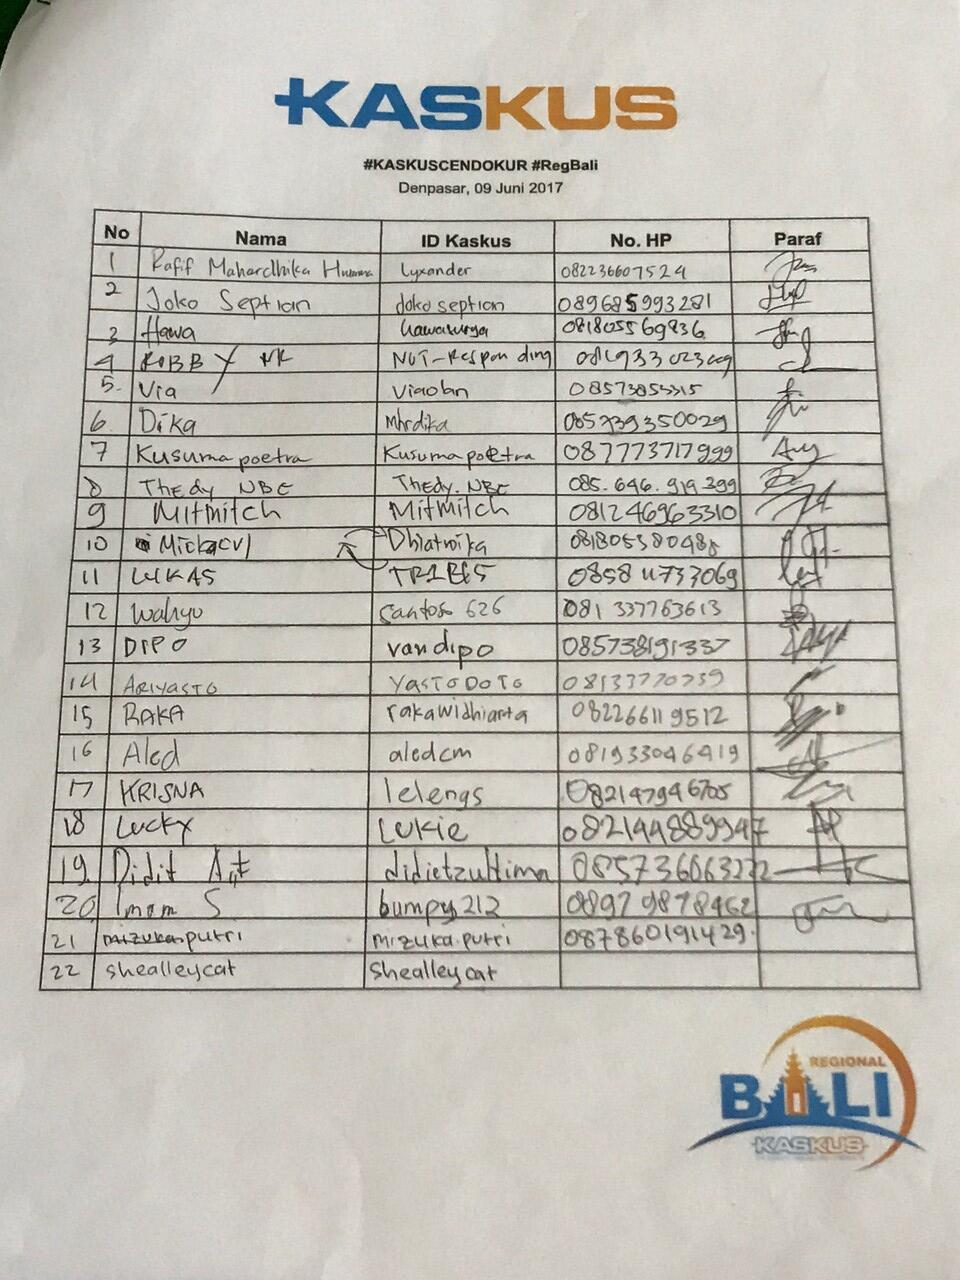 KASKUS
#KASKUSCENDOKUR #RegBali
Denpasar, 09 Juni 2017
No Nama ID Kaskus No. HP Paraf
1 Rafif Mahardhika Lyxander 082236607524
2 Joko Septian joko septian 089685993281
3 Hawa 081805569836
4 ROBBY NOT-Responding
5. Via
6. Dika Mhrdika 085739350029
7 Kusuma poetra Kusuma poetra 087773717999
8 Thedy NBE Thedy.NBE 085.646.919.399
9 Mitmitch Mitmitch 081246963310
10 Dhiatmika
11 LUKAS TR1BES
12 Wahyu Santoso 626 081 337763613
13 DIPO vandipo 085738191337
14 ARIYASTO YASTODOTO
15 RAKA rakawidhianta 082266119512
16 Aled aledcm 081933046419
17 KRISNA lelengs 082147946705
18 Lucky LUKIE 082144889947
19 Didit didietzultima 085736063272
20 Imam S bumpy212 08979878462
21 mizuka.putri mizuka.putri 087860191429.
22 shealleycat shealleycat
REGIONAL
BALI
KASKUS